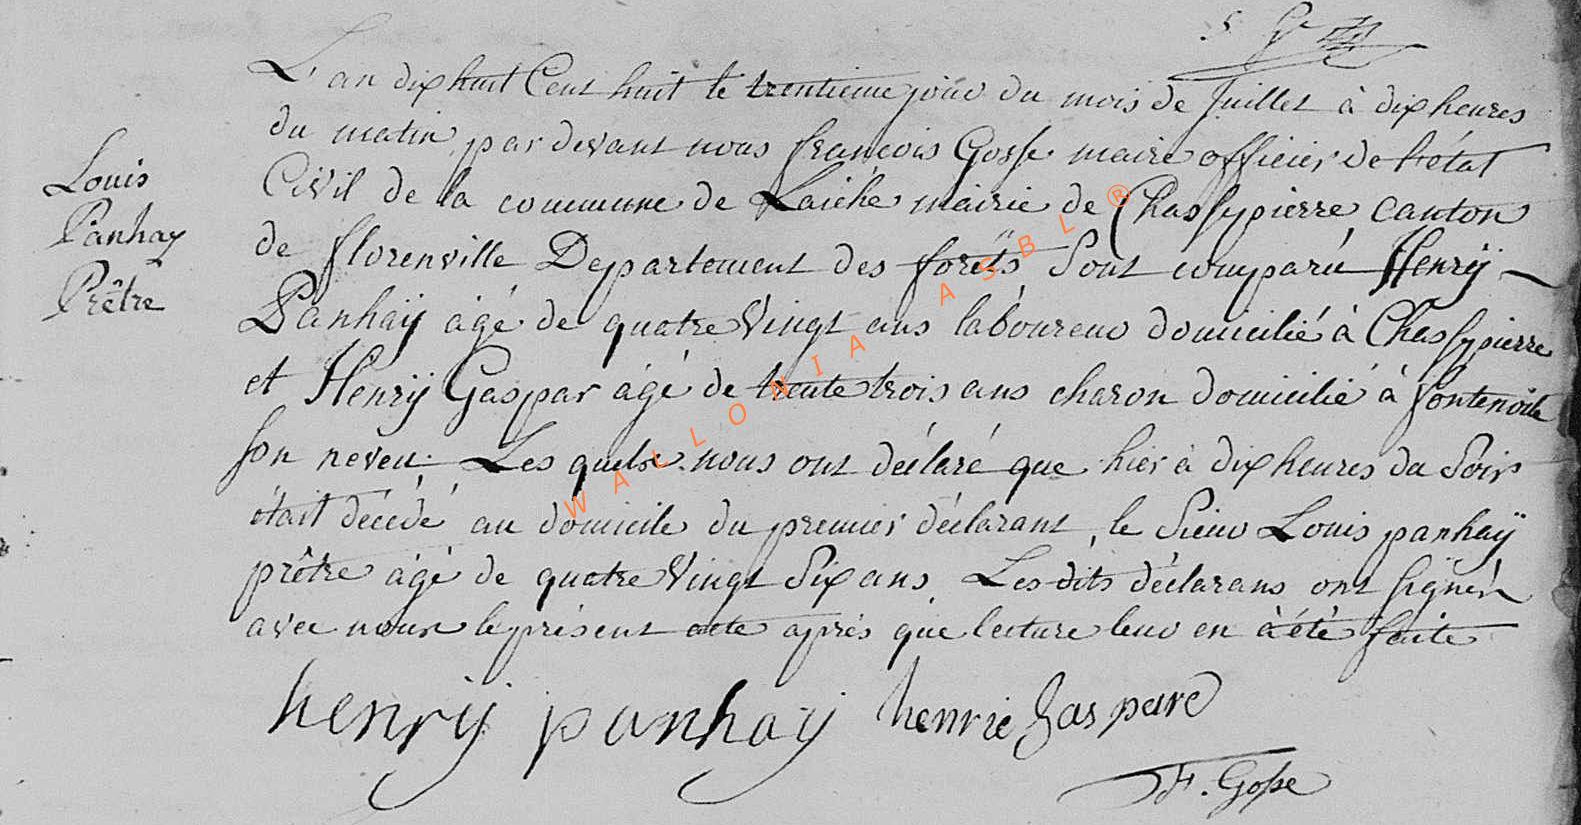 L'an dix huit Cent huit le trentieme jour du mois de Juillet à dix heures
du matin par devant nous françois Gosse maire officier de l'état
Civil de la commune de Laiche mairie de Chassepierre Canton
de florenville Departement des forêts Sont comparu Henrÿ
Panhaÿ âgé de quatre Vingt ans laboureur domicilié à Chassepierre
et Henrÿ Gaspar âgé de trente trois ans charon domicilié à fontenoile
son neveu. Les quels nous ont déclaré que hier à dix heures du Soir
était décédé au domicile du premier déclarant, le Sieur Louis panhaÿ
prêtre âgé de quatre Vingt Six ans. Les dits déclarans ont signés
avec nous le présent acte après que lecture leur en à été faite
Louis
Panhay
Prêtre
henrij panhaij henrie gaspare
F. Gosse
WALLONIA ASBL ®